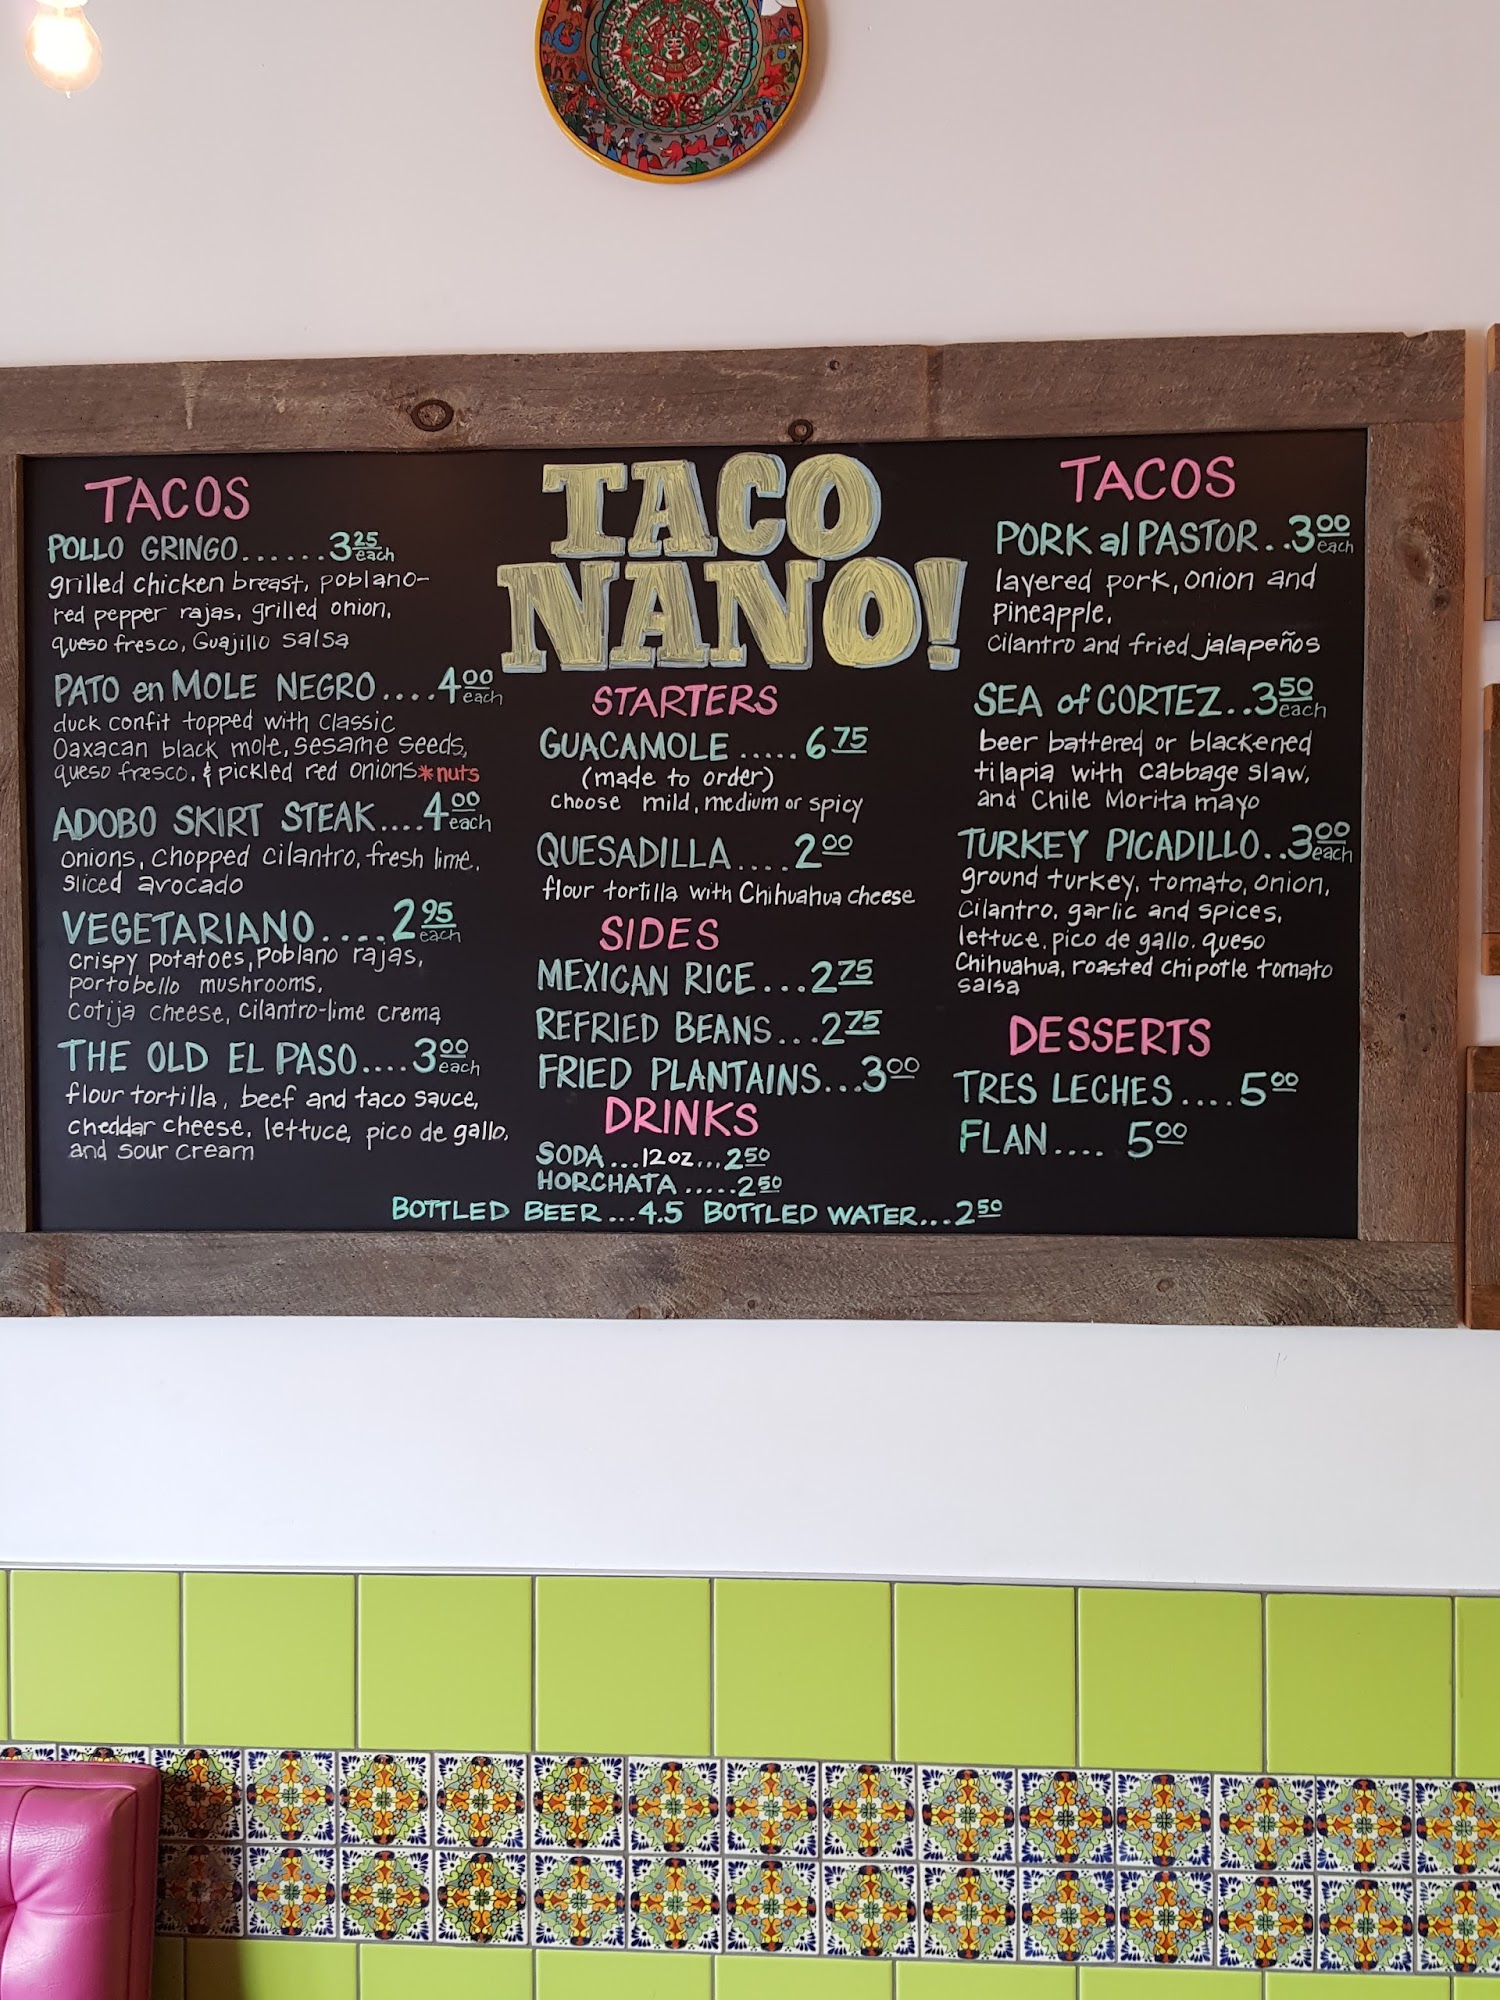 TACOS
POLLO GRINGO......3.25 each
grilled chicken breast, poblano-
red pepper rajas, grilled onion,
queso fresco, Guajillo salsa
PATO en MOLE NEGRO....4.00 each
duck confit topped with classic
Oaxacan black mole, sesame seeds,
queso fresco, & pickled red onions *nuts
ADOBO SKIRT STEAK....4.00 each
onions, chopped cilantro, fresh lime,
sliced avocado
VEGETARIANO....2.95 each
crispy potatoes, poblano rajas,
portobello mushrooms,
Cotija cheese, cilantro-lime crema
THE OLD EL PASO....3.00 each
flour tortilla, beef and taco sauce,
cheddar cheese, lettuce, pico de gallo,
and sour cream
TACO
NANO!
STARTERS
GUACAMOLE.....6.75
(made to order)
choose mild, medium or spicy
QUESADILLA....2.00
flour tortilla with Chihuahua cheese
SIDES
MEXICAN RICE...2.75
REFRIED BEANS...2.75
FRIED PLANTAINS...3.00
DRINKS
SODA...12oz...2.50
HORCHATA.....2.50
BOTTLED BEER...4.5 BOTTLED WATER...2.50
TACOS
PORK al PASTOR..3.00 each
layered pork, onion and
pineapple,
cilantro and fried jalapeños
SEA of CORTEZ..3.50 each
beer battered or blackened
tilapia with cabbage slaw,
and Chile Morita mayo
TURKEY PICADILLO..3.00 each
ground turkey, tomato, onion,
cilantro, garlic and spices,
lettuce, pico de gallo, queso
Chihuahua, roasted chipotle tomato
salsa
DESSERTS
TRES LECHES....5.00
FLAN.... 5.00